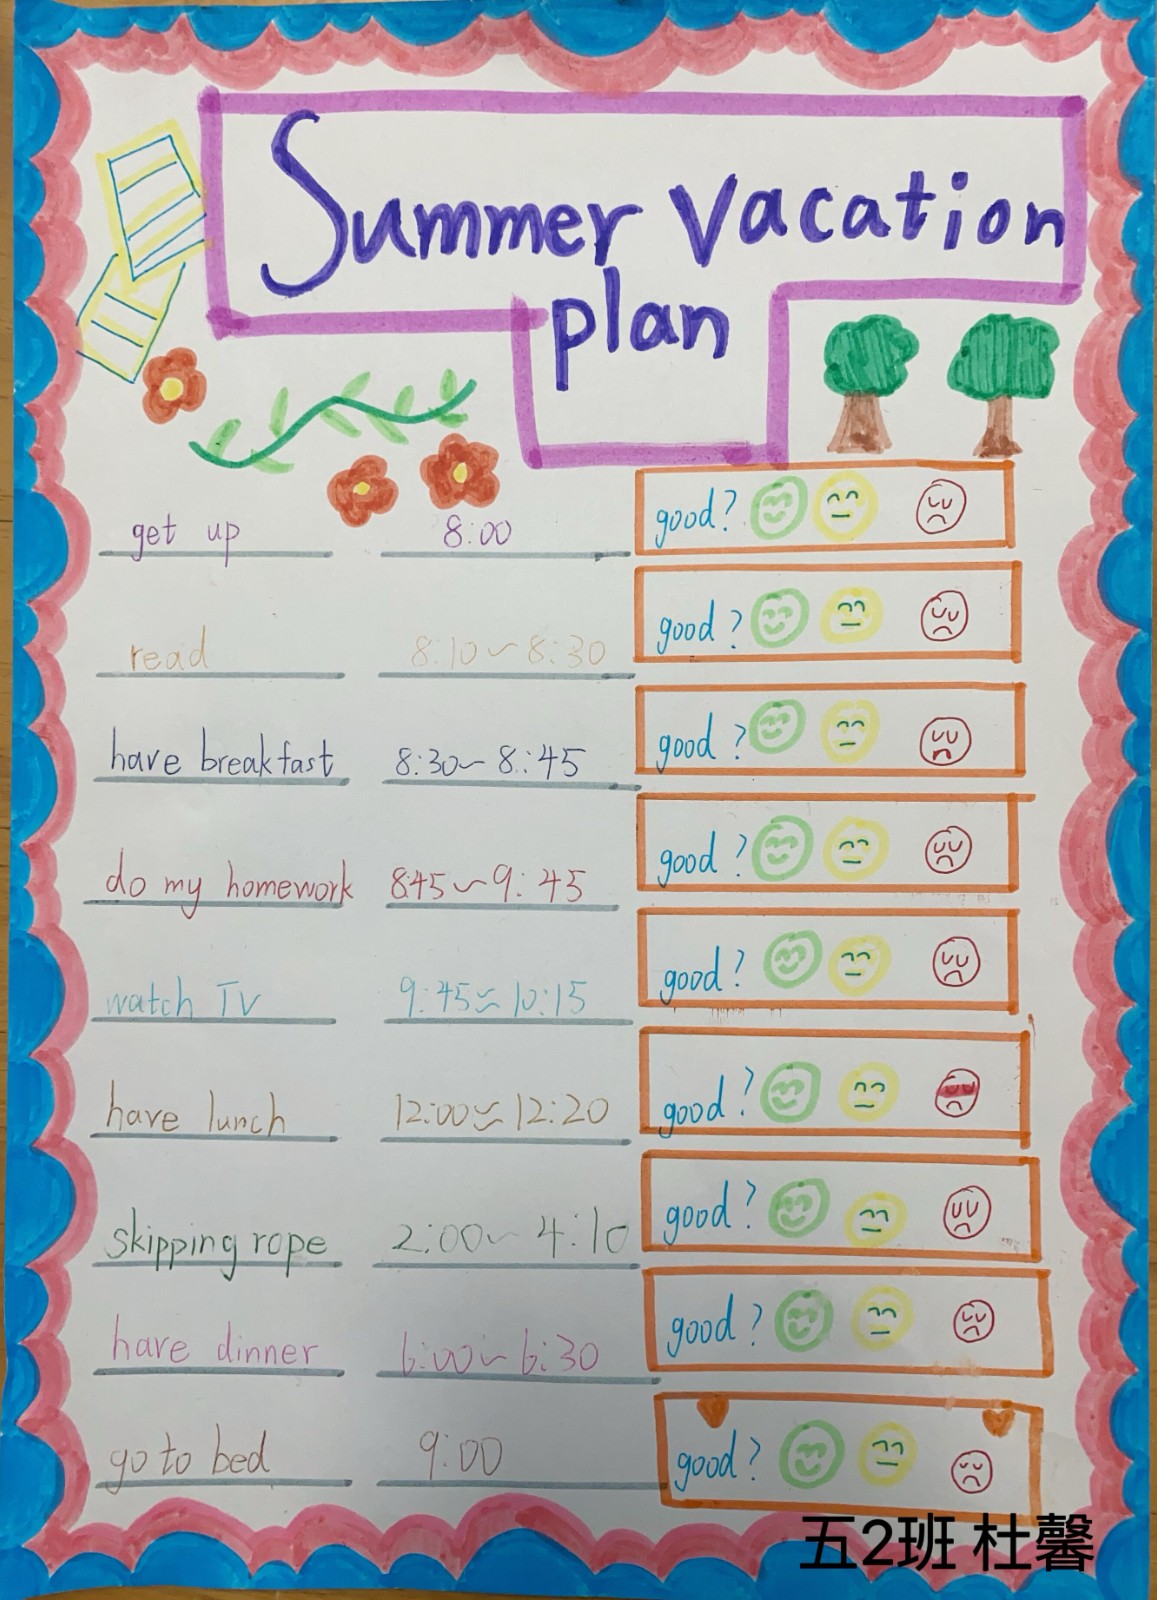 Summer vacation
plan
get up 8:00 good?
read 8:10~8:30 good?
have breakfast 8:30~8:45 good?
do my homework 845~9:45 good?
watch TV 9:45~10:15 good?
have lunch 12:00~12:20 good?
skipping rope 2:00~4:10 good?
have dinner 6:00~6:30 good?
go to bed 9:00 good?
五2班 杜馨